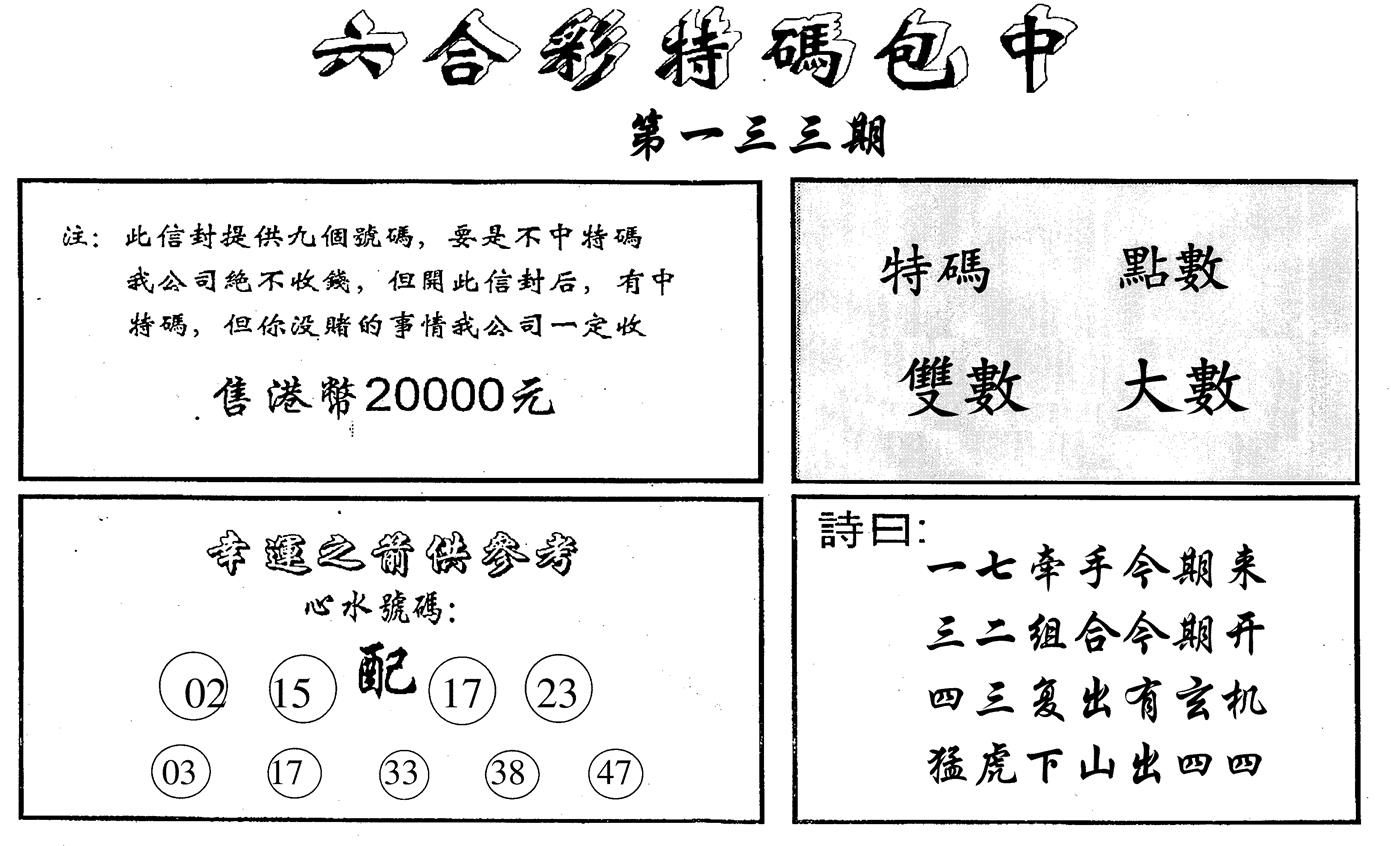 六合彩特碼包中
第一三三期
注：此信封提供九個號碼，要是不中特碼
我公司絶不收錢，但開此信封后，有中
特碼，但你没賭的事情我公司一定收
售港幣20000元
特碼 點數
雙數 大數
幸運之箭供參考
心水號碼：
02 15 配 17 23
03 17 33 38 47
詩曰：
一七牵手今期来
三二组合今期开
四三复出有玄机
猛虎下山出四四